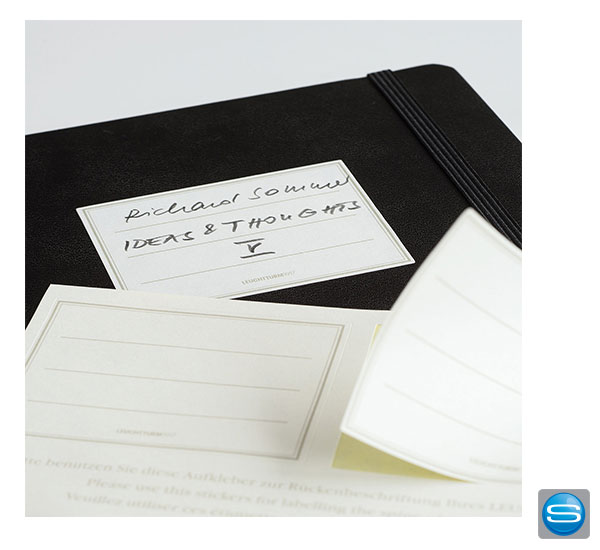 Richard Sommer
IDEAS & THOUGHTS
V
LEUCHTTURM1917
LEUCHTTURM1917
benutzen Sie diese Aufkleber zur Rückenbeschriftung Ihres
Please use this stickers for labelling the
Veuillez utiliser ces
S